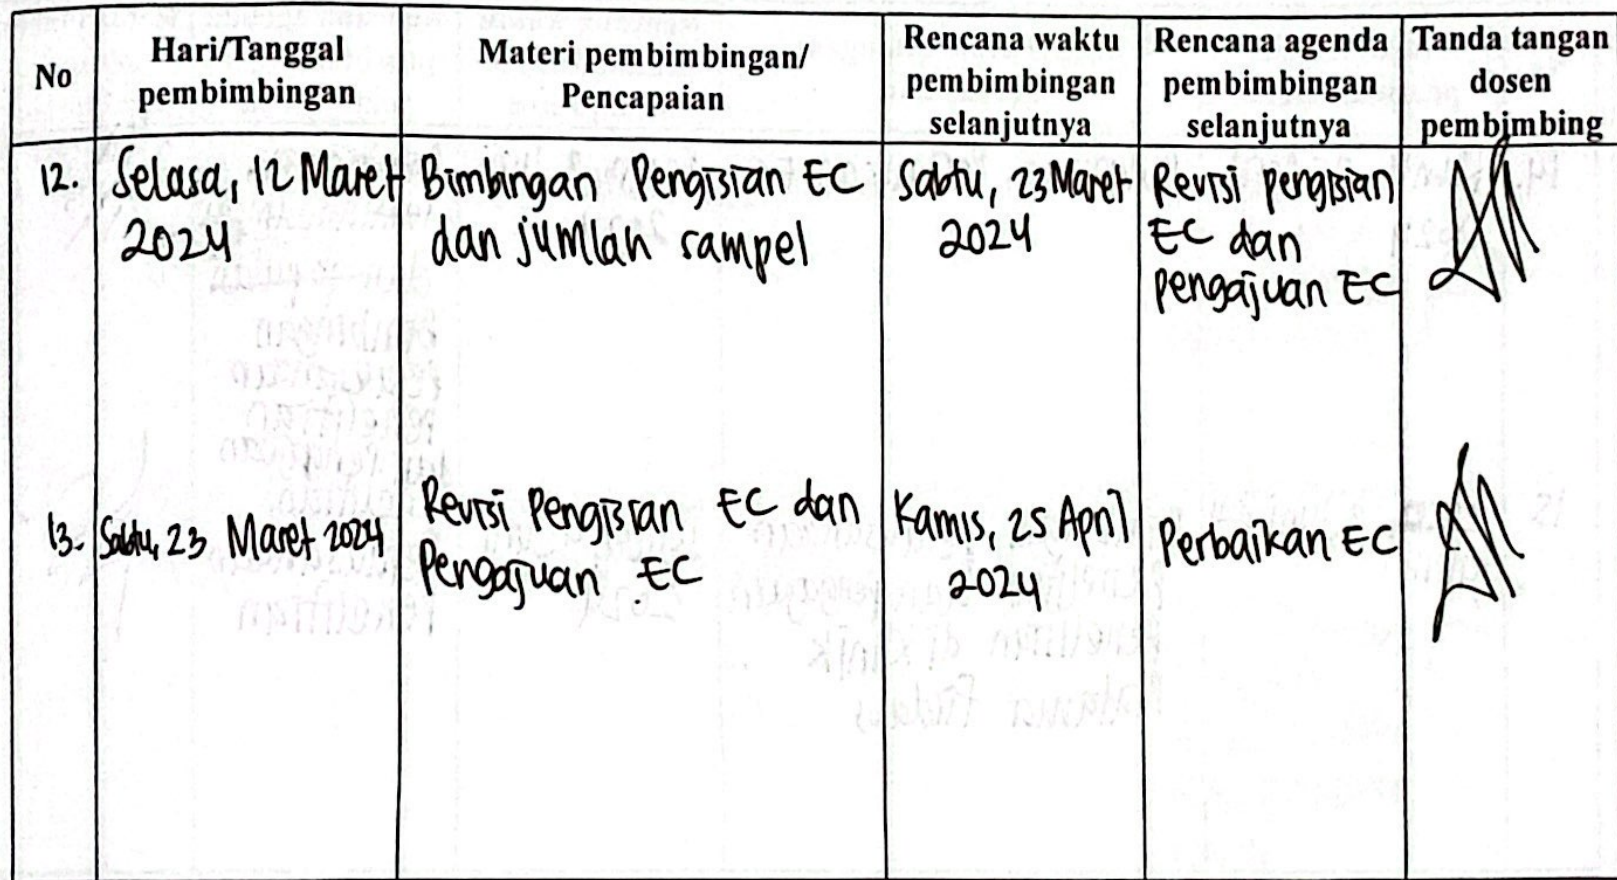 No
Hari/Tanggal
pembimbingan
Materi pembimbingan/
Pencapaian
Rencana waktu
pembimbingan
selanjutnya
Rencana agenda
pembimbingan
selanjutnya
Tanda tangan
dosen
pembimbing
12.
Selasa, 12 Maret
2024
Bimbingan Pengisian EC
dan jumlah sampel
Sabtu, 23 Maret
2024
Revisi pengisian
EC dan
pengajuan EC
13.
Sabtu, 23 Maret 2024
Revisi Pengisian EC dan
Pengajuan EC
Kamis, 25 April
2024
Perbaikan EC